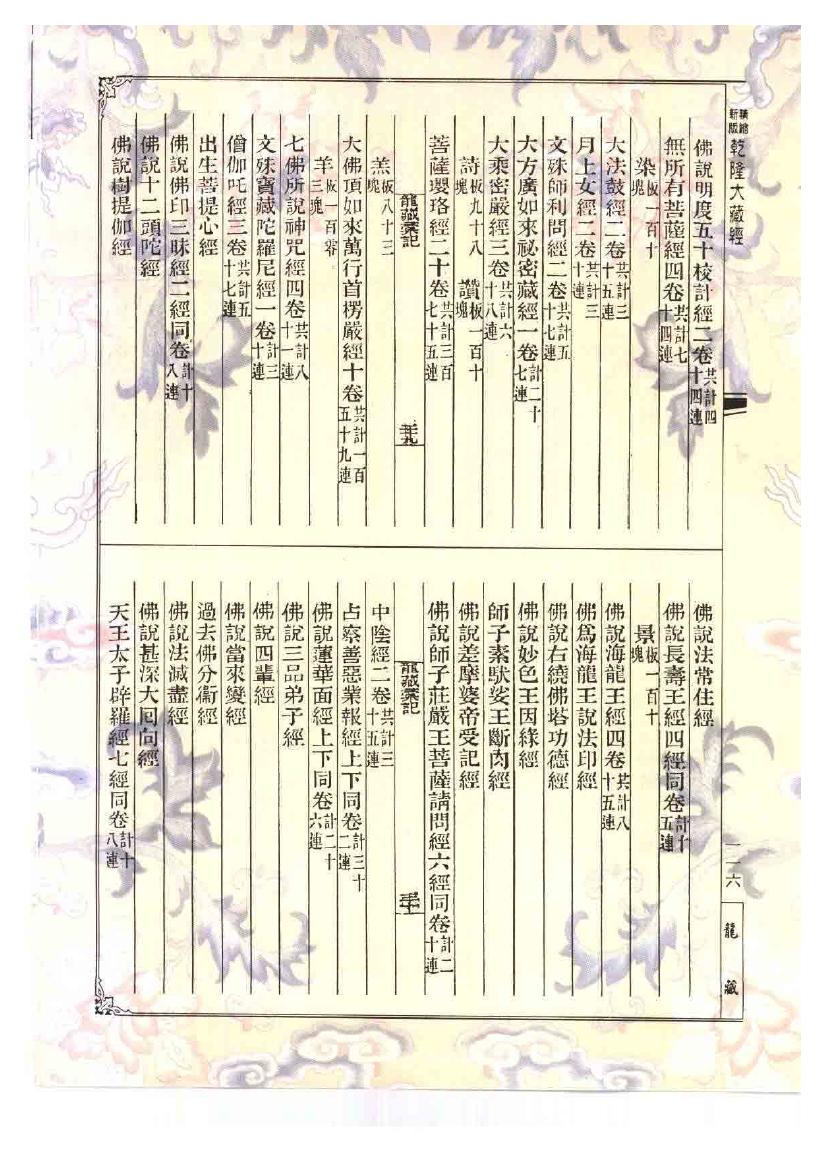 新縮
新版
乾隆大藏經
佛說明度五十校計經二卷共計四十四連
無所有菩薩經四卷共計七十四連
染板一百十塊
大法鼓經二卷共計三十五連
月上女經二卷共計三十連
文殊師利問經二卷共計五十七連
大方廣如來祕密藏經一卷計二十七連
大乘密嚴經三卷共計六十八連
詩板九十八塊 讚板一百十塊
菩薩瓔珞經二十卷共計三百七十五連
龍藏彙記
二十九
羔板八十三塊
大佛頂如來萬行首楞嚴經十卷共計一百五十九連
羊板一百零三塊
七佛所說神咒經四卷共計八十一連
文殊寶藏陀羅尼經一卷計三十連
僧伽吒經三卷共計五十七連
出生菩提心經
佛說佛印三昧經二經同卷計十八連
佛說十二頭陀經
佛說樹提伽經
佛說法常住經
佛說長壽王經四經同卷計十五連
景板一百十塊
佛說海龍王經四卷共計八十五連
佛為海龍王說法印經
佛說右繞佛塔功德經
佛說妙色王因緣經
師子素馱娑王斷肉經
佛說差摩婆帝受記經
佛說師子莊嚴王菩薩請問經六經同卷計二十連
龍藏彙記
三十
中陰經二卷共計三十五連
占察善惡業報經上下同卷計三十二連
佛說蓮華面經上下同卷計二十六連
佛說三品弟子經
佛說四輩經
佛說當來變經
過去佛分衞經
佛說法滅盡經
佛說甚深大回向經
天王太子辟羅經七經同卷計十八連
一一六
龍藏